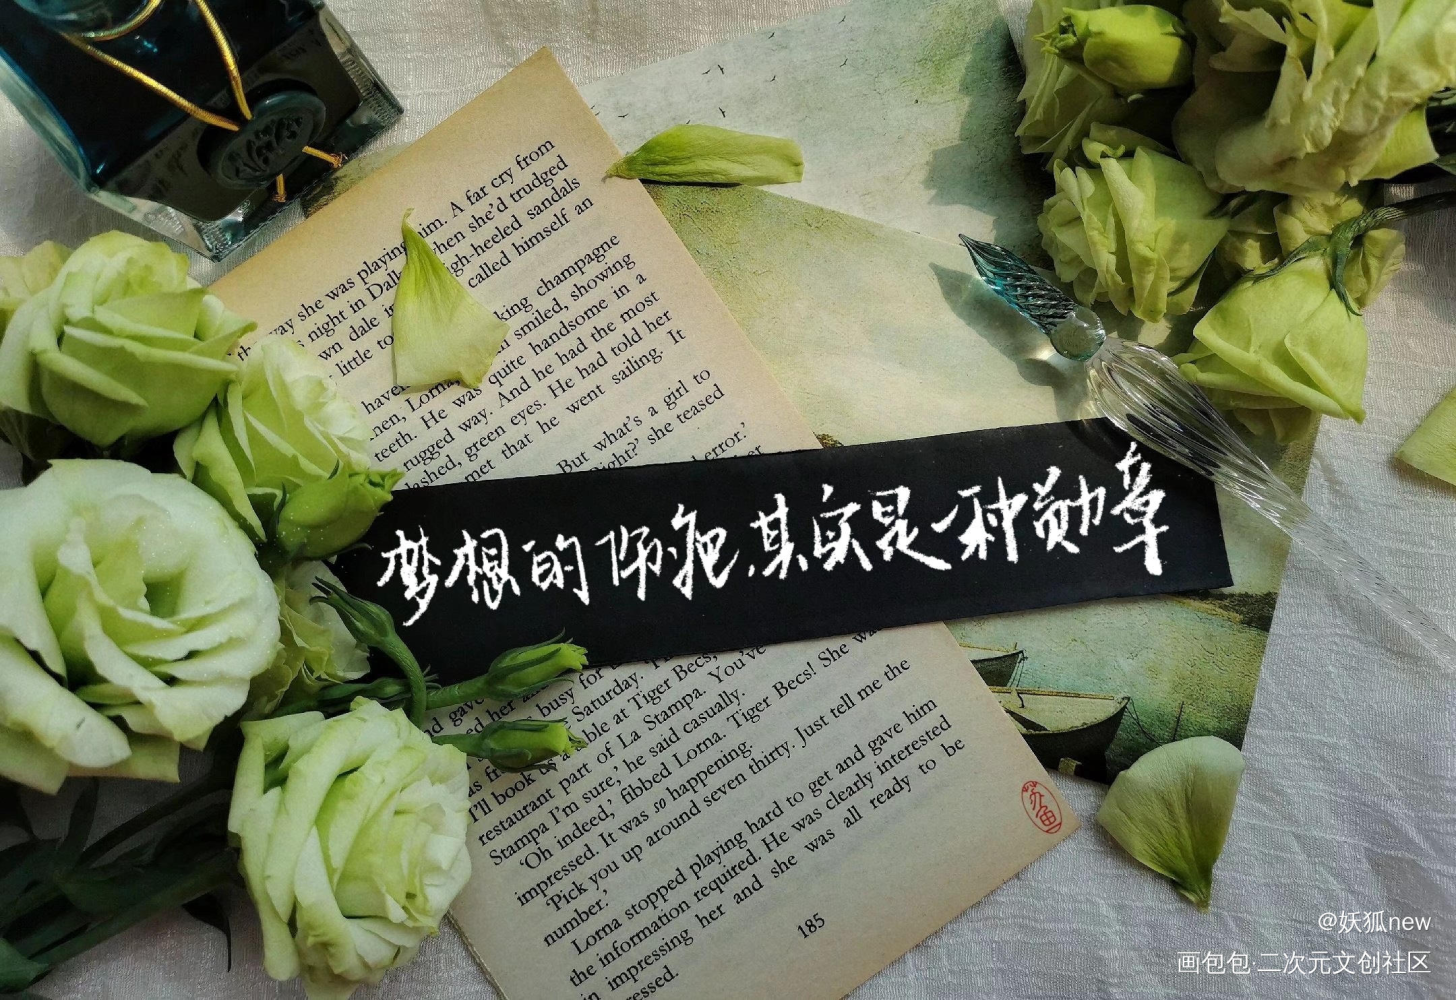 im. A far cry from
way she was playing hen she'd trudged
s night in Dall gh-heeled sandals
wn dale in called himself an
little to
king champagne
have n smiled, showing
men, Lorna, quite handsome in a
teeth. He was And he had the most
rugged way. He had told her
lashed, green eyes. sailing. It
met that he went
But what's a girl to
ight?' she teased
error.'
梦想的师疤,其实是一种勋章
busy for
Saturday.
ble at Tiger Becs,
I'll book
restaurant part of La Stampa. You've
Stampa I'm sure,' he said casually.
'Oh indeed,' fibbed Lorna. Tiger Becs! She wa
impressed. It was so happening.
'Pick you up around seven thirty. Just tell me the
number.'
Lorna stopped playing hard to get and gave him
the information required. He was clearly interested
in impressing her and she was all ready to be
ressed.
185
@妖狐new
画包包·二次元文创社区